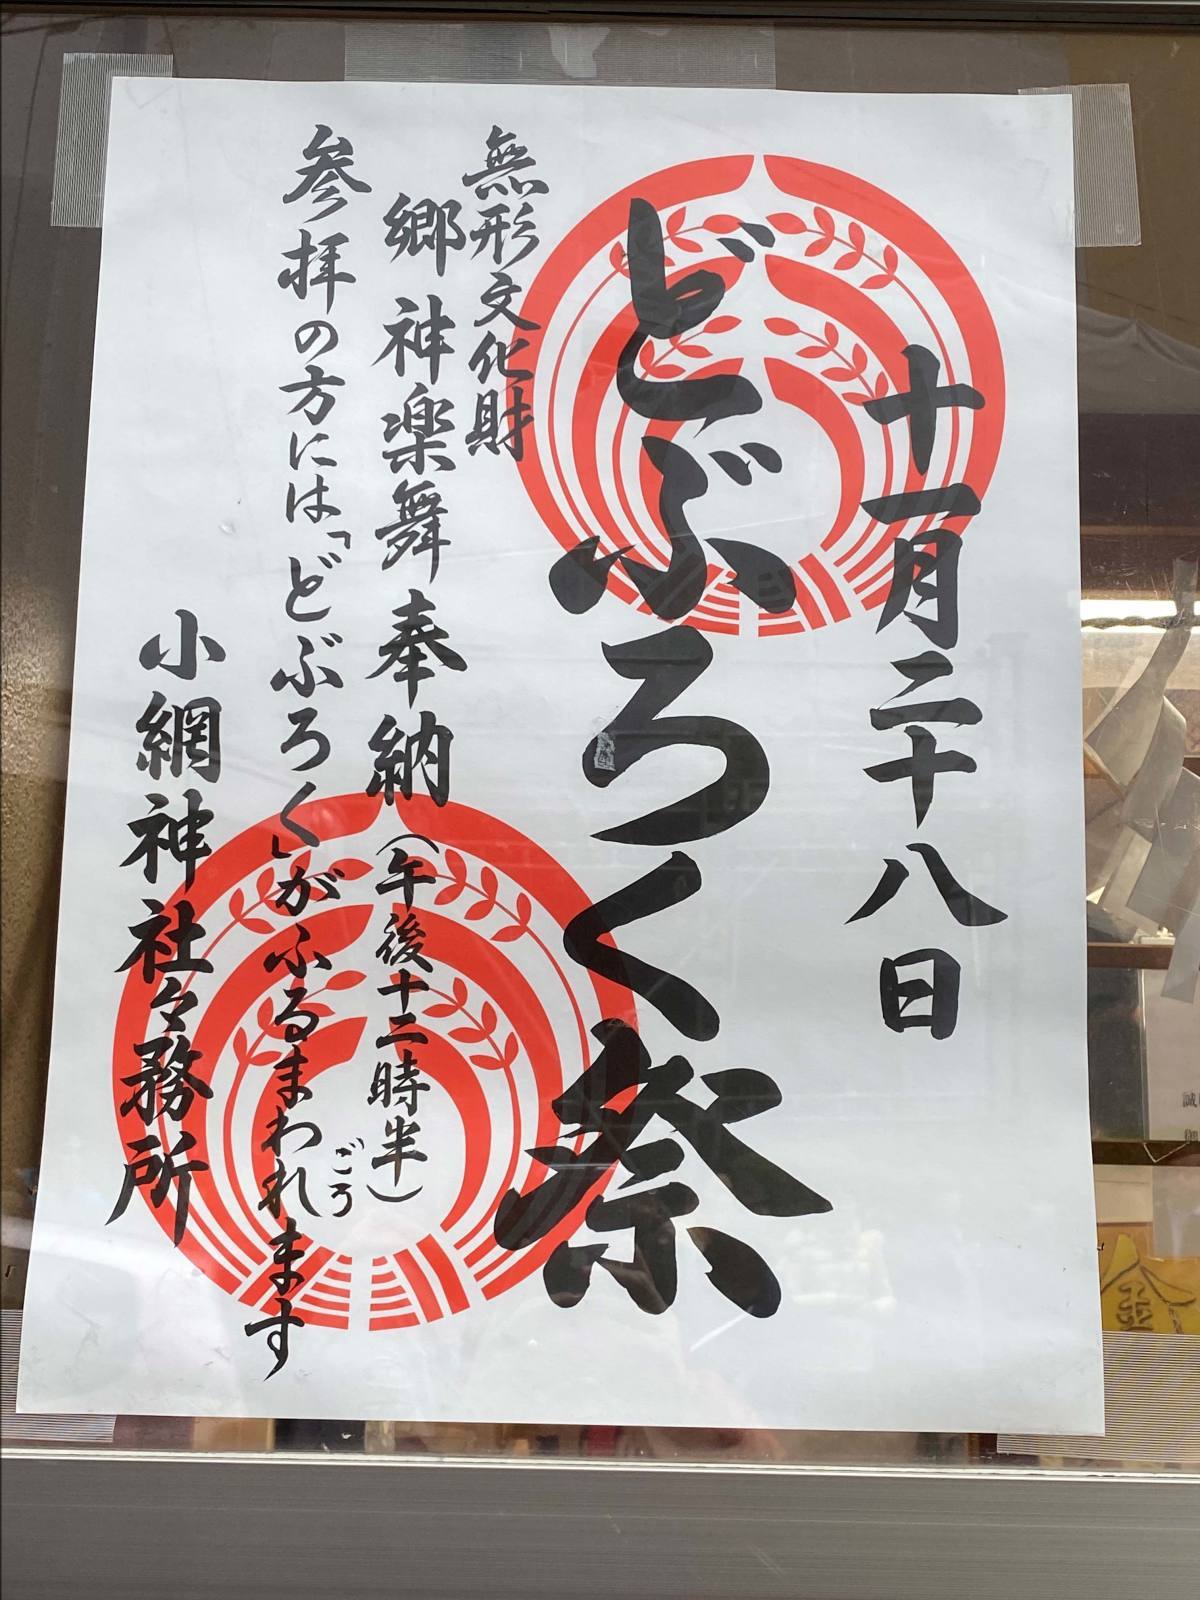 十一月二十八日
どぶろく祭
無形文化財
郷神楽舞奉納（午後十二時半）
ごろ
参拝の方には「どぶろく」がふるまわれます
小網神社々務所
金